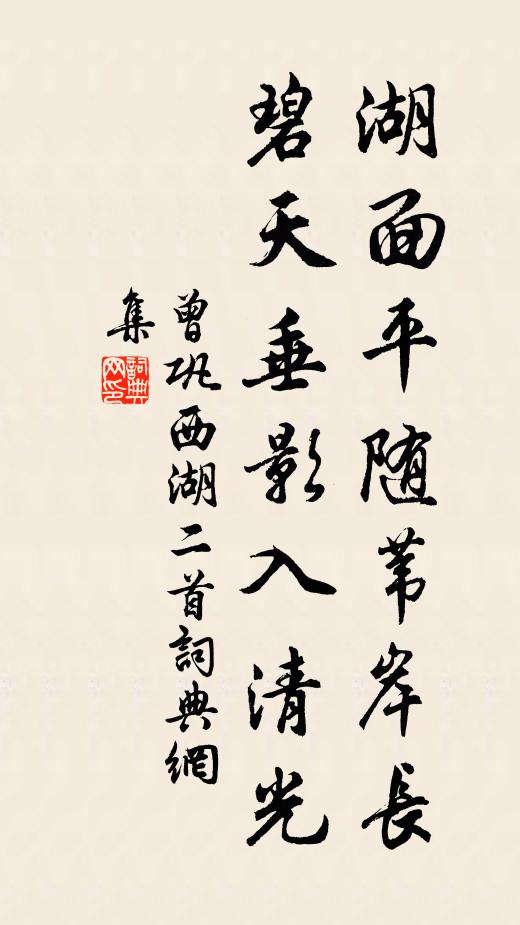 湖面平随葦岸長
碧天垂影入清光
曾巩西湖二首詞典網
集
詞典
网印